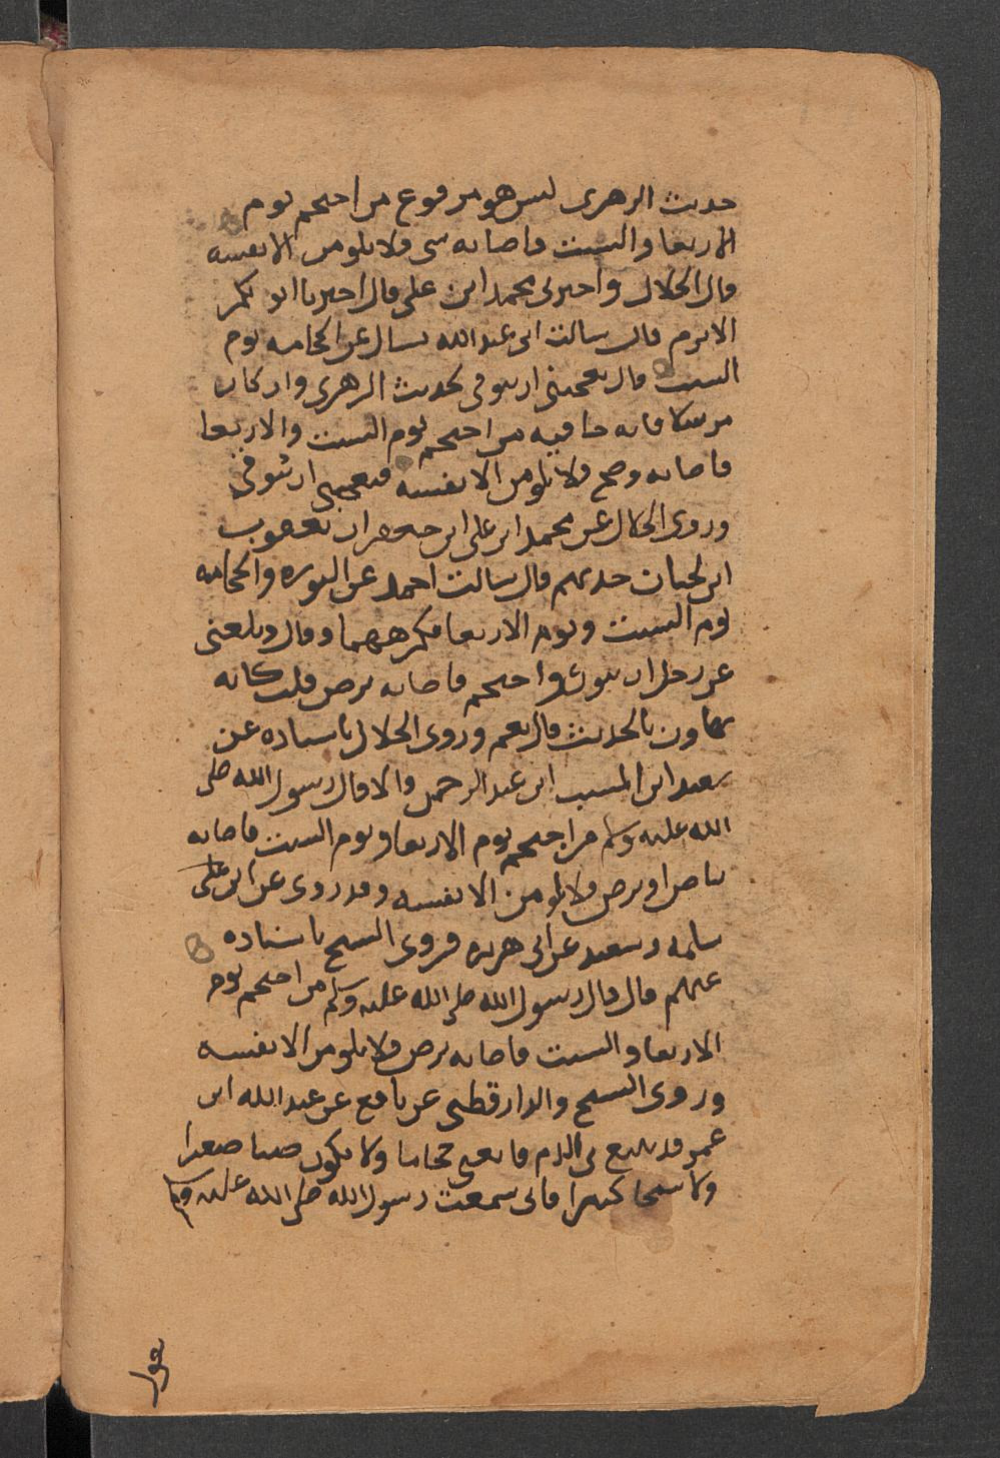 حديث الزهرى ليس هو مرفوع من احتجم يوم
الاربعا والسبت فاصابه شى فلا يلومن الا نفسه
قال الخلال واخبرنى محمد ابن على قال اخبرنا ابو بكر
الاثرم قال سالت ابى عبد الله يسال عن الحجامه يوم
السبت قال يعجبنى ان يتوقى لحديث الزهرى وان كان
مرسلا فانه جا فيه من احتجم يوم السبت والاربعا
فاصابه وضح فلا يلومن الا نفسه فيعجبنى ان يتوقى
وروى الخلال عن محمد ابن على ابن جعفر ان يعقوب
ابن بختان حدثهم قال سالت احمد عن النوره والحجامه
يوم السبت ويوم الاربعا فكرههما وقال وبلغنى
عن رجل ان تنور واحتجم فاصابه برص قلت كانه
تهاون بالحديث قال نعم وروى الخلال باسناده عن
سعيد ابن المسيب ابن عبد الرحمن والا قال رسول الله صلى
الله عليه وسلم من احتجم يوم الاربعا ويوم السبت فاصابه
بياض او برص فلا يلومن الا نفسه وقد روى عن ابن على
سلمه وسعيد عن ابى هريره فروى الشيخ باسناده
عنهم قال قال رسول الله صلى الله عليه وسلم من احتجم يوم
الاربعا والسبت فاصابه برص فلا يلومن الا نفسه
وروى الشيخ والدارقطنى عن نافع عن عبد الله ابن
عمر قد تبيغ بى الدم فابغنى حجاما ولا يكون صبيا صغيرا
ولا شيخا كبيرا فانى سمعت رسول الله صلى الله عليه وسلم
يقول